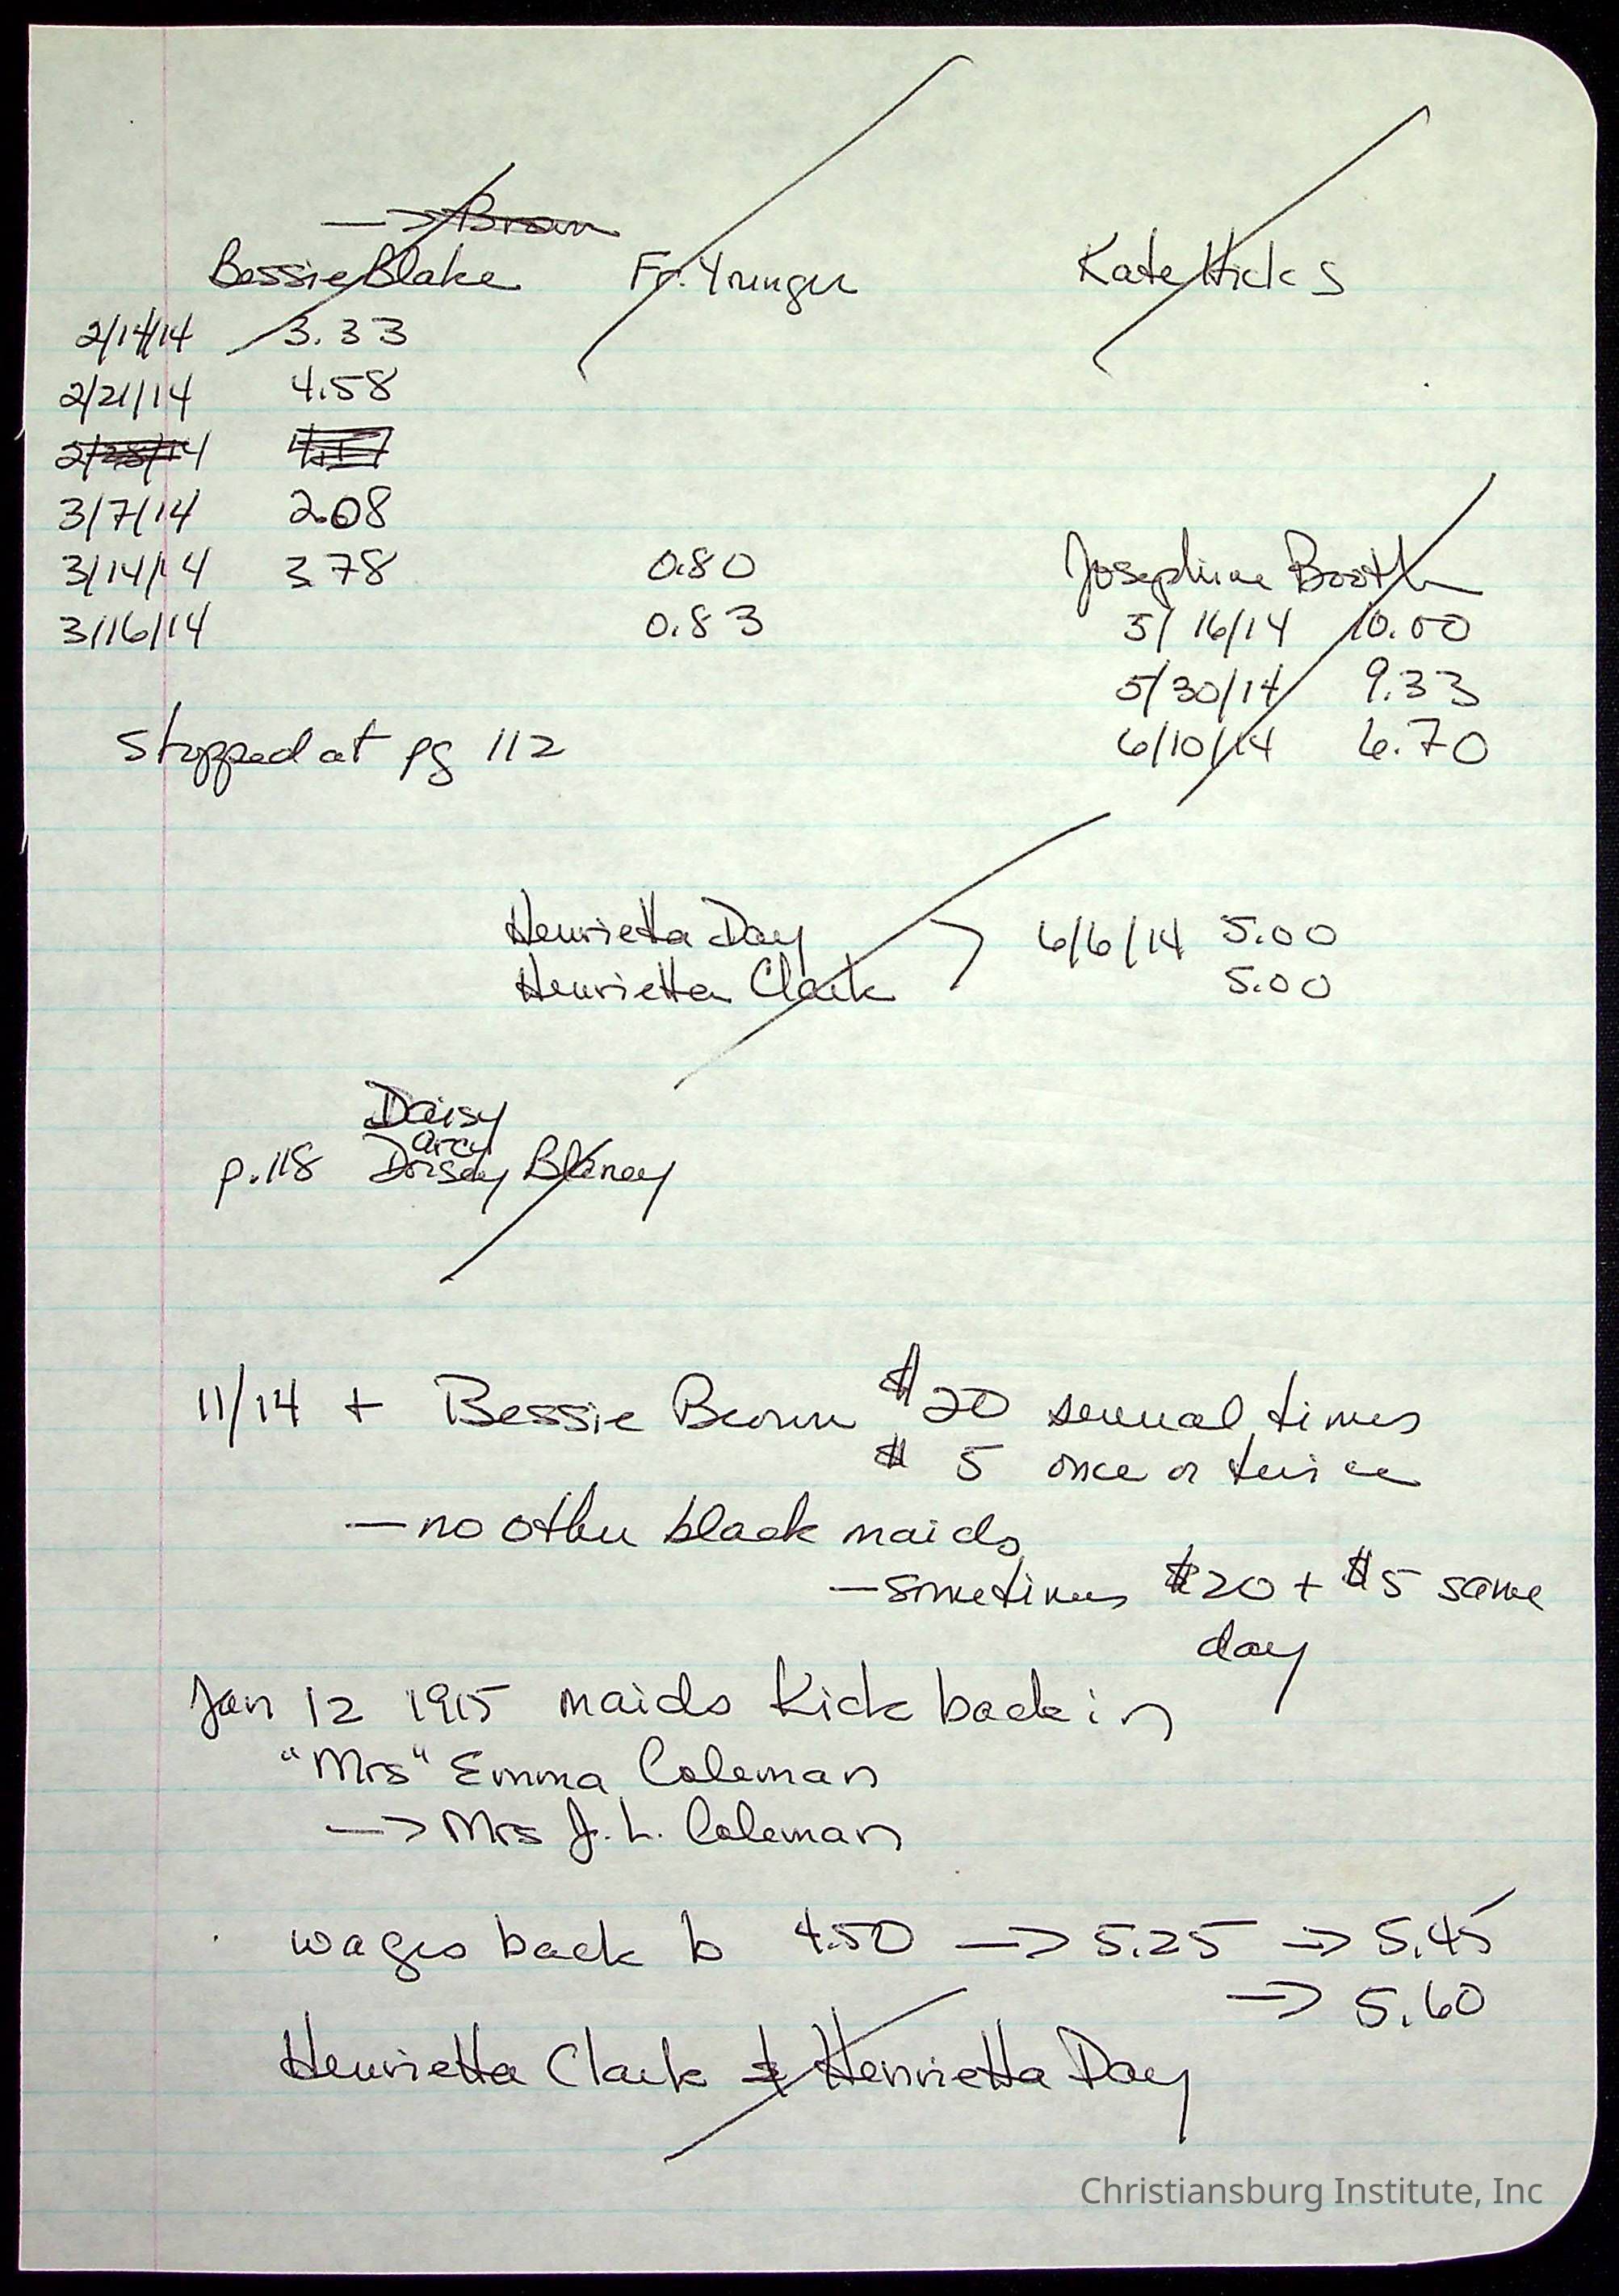 → Brown
Bessie Blake Fr. Younger Kate Hicks
2/14/14 3.33
2/21/14 4.58
2/28/14 4.17
3/7/14 2.08
3/14/14 3.78 0.80 Josephine Booth
3/16/14 0.83 5/16/14 10.00
5/30/14 9.33
Stopped at pg 112 6/10/14 6.70
Henrietta Day 6/6/14 5.00
Henrietta Clark 5.00
Daisy
arcy
p.118 Dorsey Blaney
11/14 + Bessie Brown $20 several times
$ 5 once or twice
— no other black maids
— sometimes $20 + $5 same
day
Jan 12 1915 maids kick back in
"Mrs" Emma Coleman
→ Mrs J. L. Coleman
wages back to 4.50 → 5.25 → 5.45
→ 5.60
Henrietta Clark & Henrietta Day
Christiansburg Institute, Inc